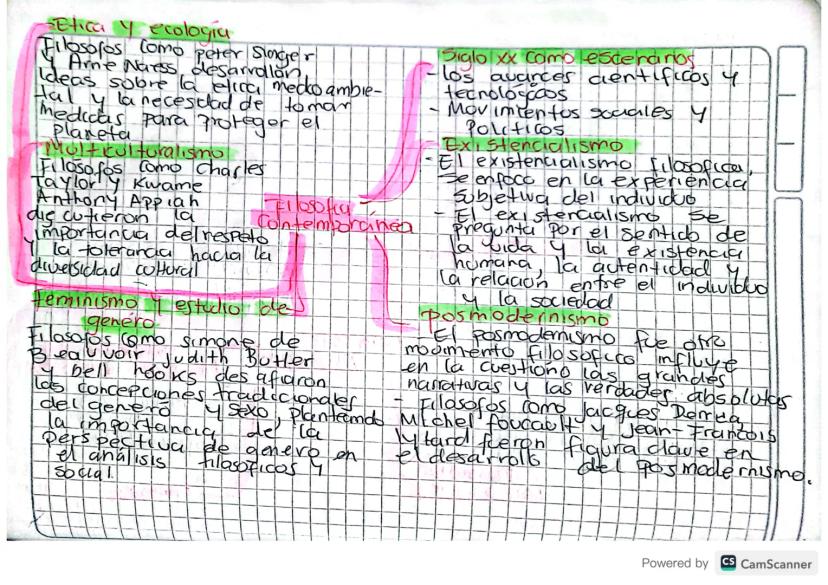 Etica y ecología
Filosofos como peter Singer
y Arne Naess desarrollan
ideas sobre la etica medio ambie-
tal y la necesidad de tomar
medidas para proteger el
planeta
Multiculturalismo
Filosofos como Charles
Taylor y Kwame
Anthony Appiah
discutieron la
importancia del respeto
y la tolerancia hacia la
diversidad cultural
feminismo y estudio de
genero
Filosofos como simone de
Beauvoir judith Butler
y bell hooks desafiaron
las concepciones tradicionales
del genero y sexo, planteando
la importancia de la
perspectiva de genero en
el análisis filosoficos y
social.
Filosofia
Contemporánea
Siglo xx como escenarios
- los avances cientificos y
tecnologicos
- Movimientos sociales y
Politicos
Existencialismo
- El existencialismo filosofica,
se enfoco en la experiencia
subjetiva del individuo
- El existencialismo se
pregunta por el sentido de
la vida y la existencia
humana, la autentidad y
la relación entre el individuo
y la sociedad
posmodernismo
- El posmodernismo fue otro
movimiento filosofico influye
en la cuestiono las grandes
narrativas y las verdades absolutas
- Filosofos como Jacques Derrida
Michel foucault y Jean-Francois
lytard fueron figura clave en
el desarrollo del posmodernismo.
Powered by CS CamScanner